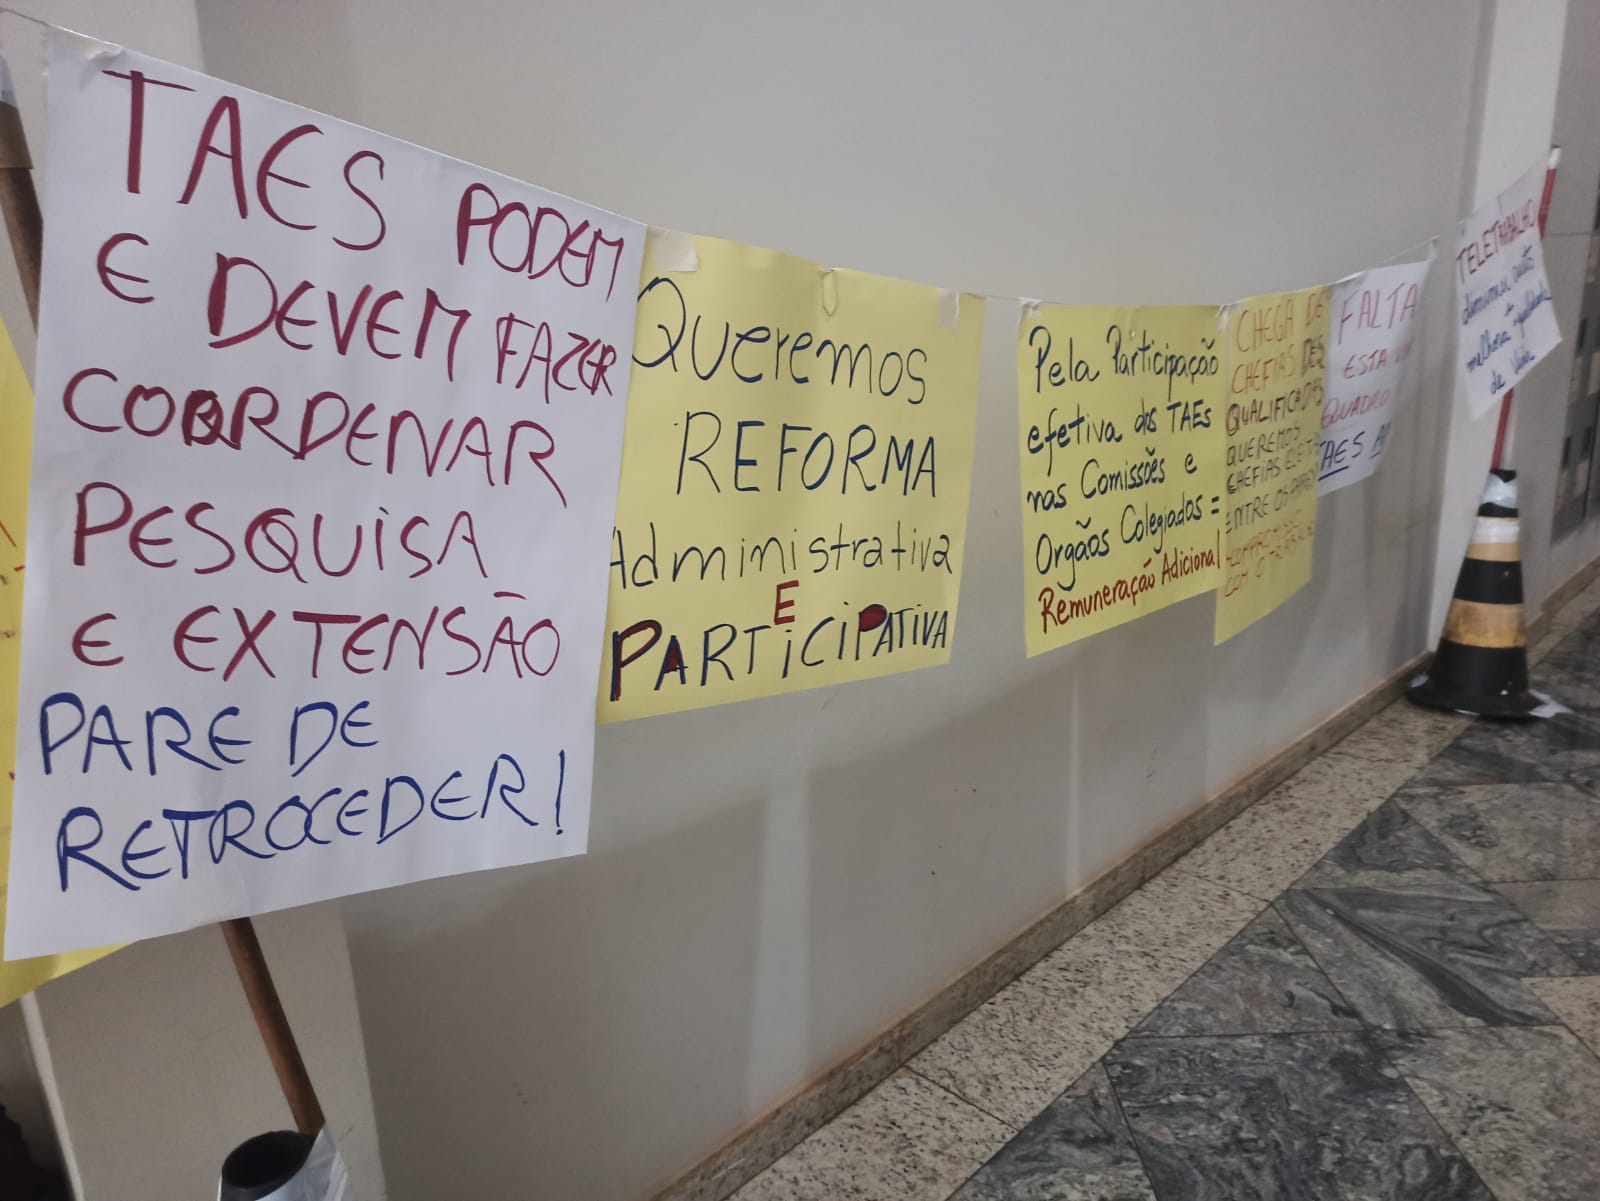 TAES PODEM
E DEVEM FAZER
COORDENAR
PESQUISA
E EXTENSÃO
PARE DE
RETROCEDER!
Queremos
REFORMA
Administrativa
E
PARTiCiPATiVA
Pela Participação
efetiva dos TAEs
nas Comissões e
Orgãos Colegiados =
Remuneração Adicional
CHEGA DE
CHEFIAS DES
QUALIFICADAS
QUEREMOS
CHEFIAS
ENTRE OS PARES
COMPROMISSO
COM O
FALTA
ESTA
QUADRO
TAES
TELETRABALHO
diminui custos
+
melhora qualidade
de vida